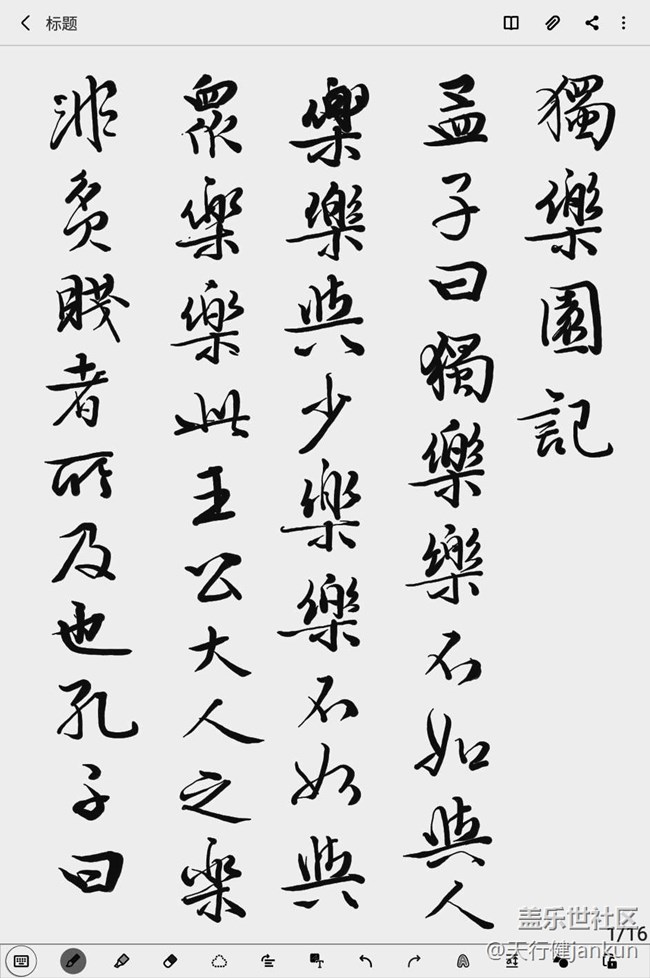 标题
獨樂園記
孟子曰獨樂樂不如與人
樂樂與少樂樂不如與
眾樂樂此王公大人之樂
非貧賤者所及也孔子曰
盖乐世社区
1/16
@天行健jankun